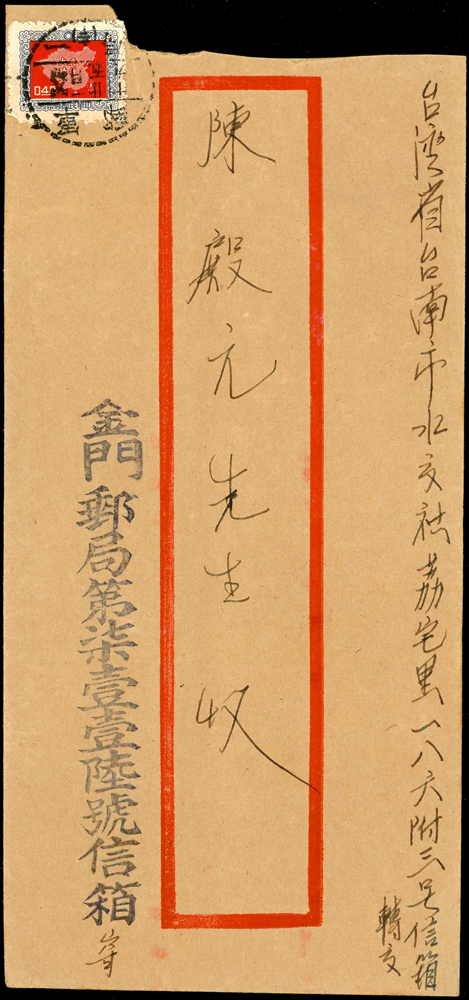 台湾省台南市水交社荔宅里一八六附三号信箱
轉交
陳殿元先生 收
金門郵局第柒壹壹陸號信箱
寄